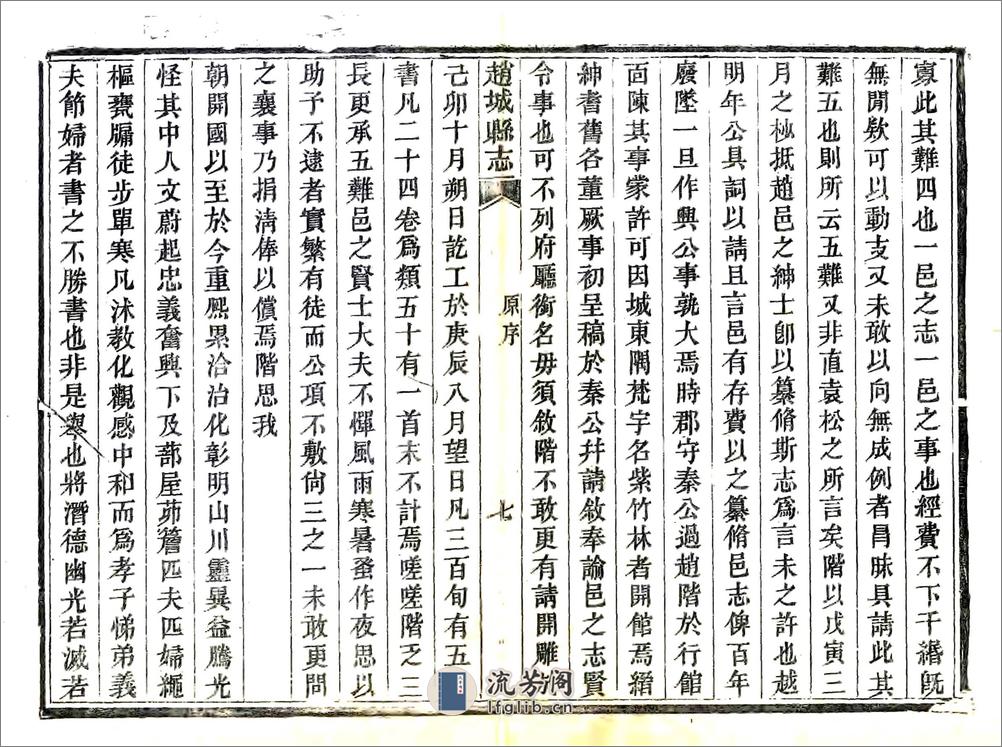 寡此其難四也一邑之志一邑之事也經費不下千緡旣
無閒欵可以動支又未敢以向無成例者昌昧具請此其
難五也則所云五難又非直袁松之所言矣階以戊寅三
月之杪抵趙邑之紳士卽以纂脩斯志爲言未之許也越
明年公具詞以請且言邑有存費以之纂脩邑志俾百年
廢墜一旦作興公事孰大焉時郡守秦公過趙階於行館
面陳其事蒙許可因城東隅梵宇名紫竹林者開館焉縉
紳耆舊各董厥事初呈稿於秦公幷請敘奉諭邑之志賢
令事也可不列府廳銜名毋須敘階不敢更有請開雕
趙城縣志
原序
七
己卯十月朔日訖工於庚辰八月望日凡三百旬有五
書凡二十四卷爲類五十有一首末不計焉嗟嗟階乏三
長更承五難邑之賢士大夫不憚風雨寒暑蚤作夜思以
助予不逮者實繁有徒而公項不敷尙三之一未敢更問
之襄事乃捐淸俸以償焉階思我
朝開國以至於今重熙累洽治化彰明山川靈異益騰光
怪其中人文蔚起忠義奮興下及蔀屋茆簷匹夫匹婦繩
樞甕牖徒步單寒凡沐敎化觀感中和而爲孝子悌弟義
夫節婦者書之不勝書也非是舉也將潛德幽光若滅若
流芳阁
lfglib.cn